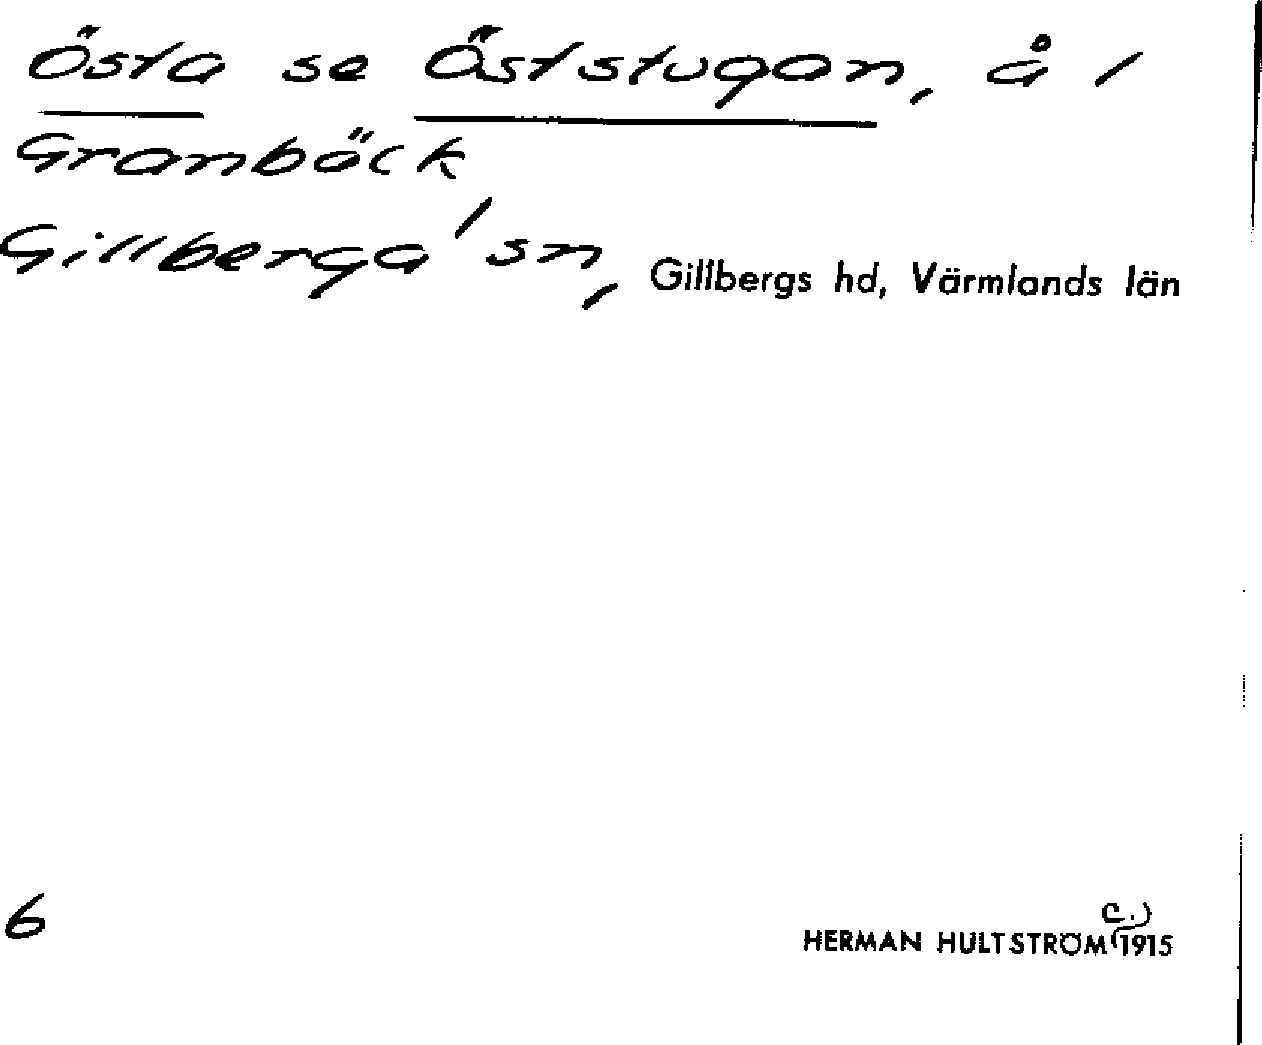 Östa se Öststugan, å /
Granbäck
Gillberga / sn, Gillbergs hd, Värmlands län
6
HERMAN HULTSTRÖM (c.) 1915